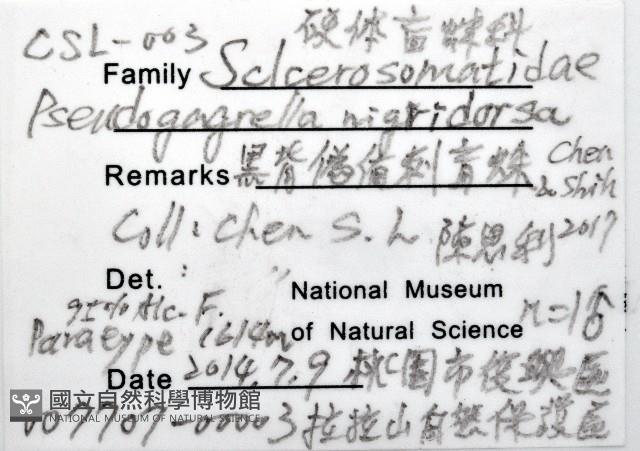 CSL-003 硬体盲蛛科
Family Sclcerosomatidae
Pseudogagrella nigridorsa
Remarks 黑背僞背刺盲蛛 Chen & Shih
Coll: Chen S. L 陳思利 2017
Det. : "
95% Alc. F. National Museum
Paratype 1614m of Natural Science n=1♂
Date 2014.7.9 桃園市復興區
國立自然科學博物館
NATIONAL MUSEUM OF NATURAL SCIENCE
拉拉山自然保護區